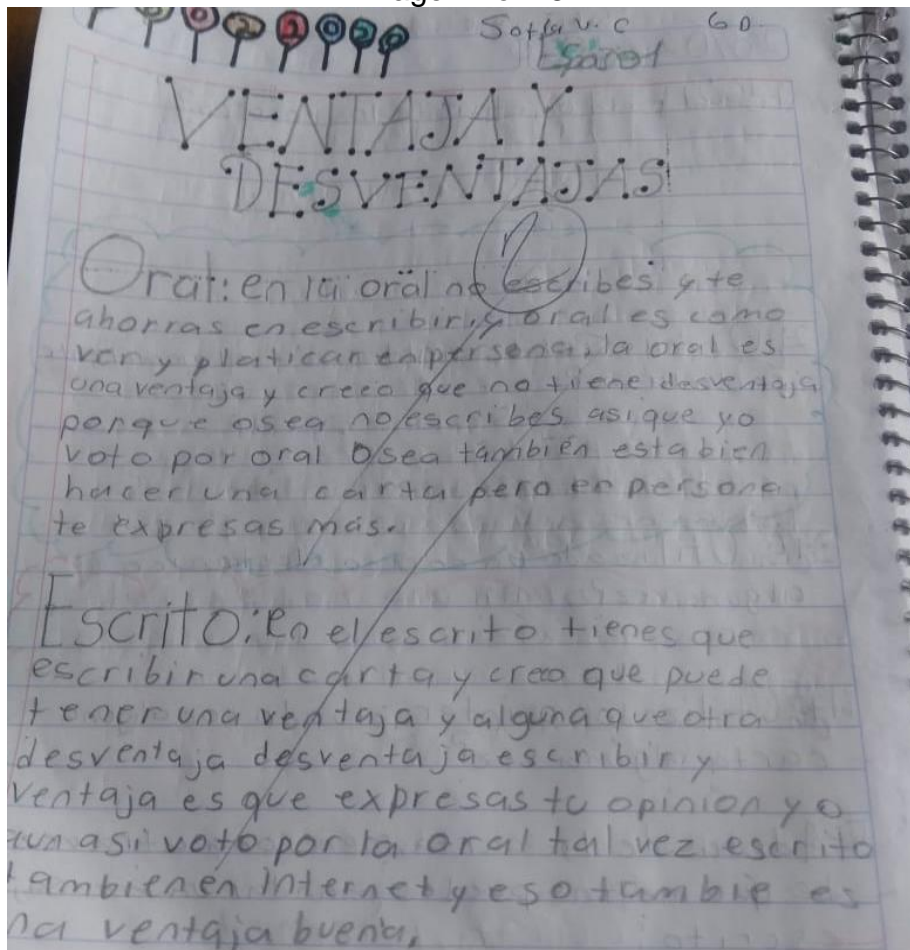 Sofia v. c 6D
Español
VENTAJA Y
DESVENTAJAS
Oral: en la oral no escribes y te
ahorras en escribir, y oral es como
ver y platicar en persona, la oral es
una ventaja y creeo que no tiene desventaja
porque osea no escribes asi que yo
voto por oral Osea también esta bien
hacer una carta pero en persona
te expresas más.
Escrito: en el escrito tienes que
escribir una carta y creeo que puede
tener una ventaja y alguna que otra
desventaja desventaja escribir y
ventaja es que expresas tu opinion yo
aun asi voto por la oral tal vez escrito
tambien en internet y eso tambie es
na ventaja buena,